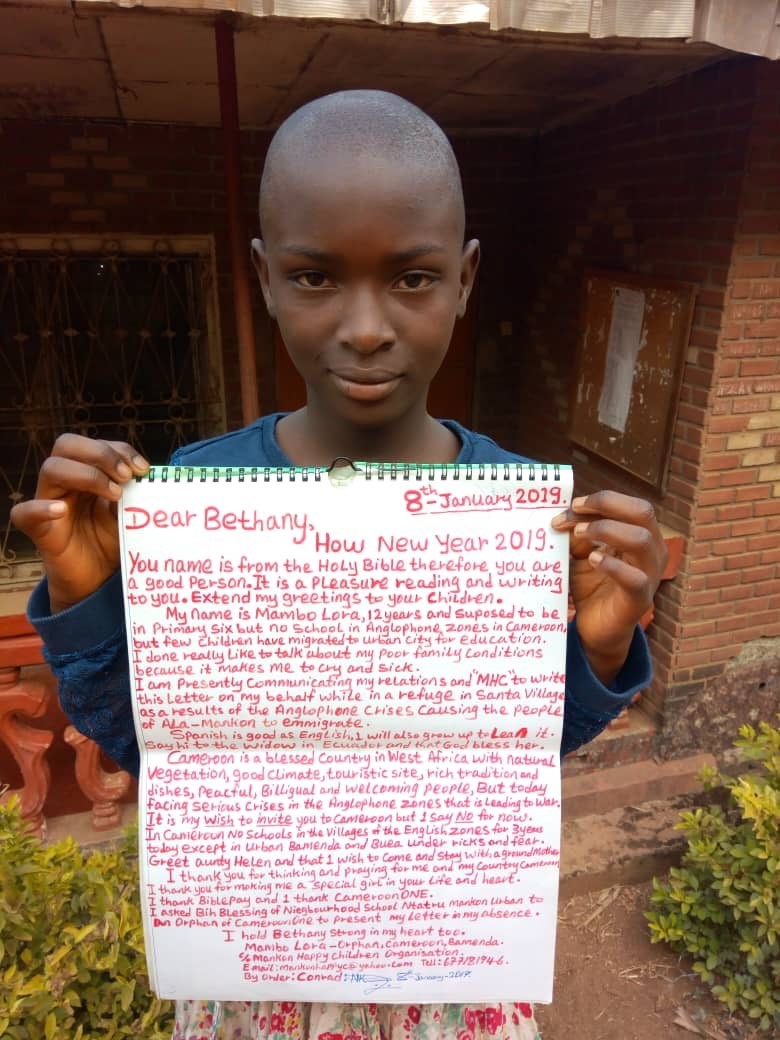 8th January 2019.
Dear Bethany,
How New Year 2019.
You name is from the Holy Bible therefore you are
a good Person. It is a Pleasure reading and writing
to you. Extend my greetings to your Children.
My Name is Mambo Lora, 12 years and suposed to be
in Primary Six but no School in Anglophone zones in Cameroon,
but few Children have migrated to urban City for Education.
I done really Like to talk about my Poor family Conditions
because it makes me to cry and sick.
I am Presently Communicating my relations and "MHC" to write
this Letter on my behalf while in a refuge in Santa Village
as a results of the Anglophone Crises Causing the people
of Ala-Mankon to emmigrate.
Spanish is good as English, I will also grow up to Lean it.
Say hi to the Widow in Ecuador and that God bless her.
Cameroon is a blessed Country in West Africa with natural
Vegetation, good climate, touristic site, rich tradition and
dishes, Peacful, Billigual and welcoming People, But today
facing Serious Crises in the Anglophone zones that is leading to War.
It is my Wish to invite you to Cameroon but I say No for now.
In Cameroun No Schools in the Villages of the English zones for 3years
today except in Urban Bamenda and Buea under ricks and fear.
Greet aunty Helen and that I wish to Come and Stay with a ground Mother
I thank you for thinking and praying for me and my Country Cameroon
I thank you for making me a special girl in your Life and heart.
I thank BiblePay and I thank CameroonONE.
I asked Bih Blessing of Niegbourhood School Ntatru Mankon Urban to
an Orphan of CameroonOne to present my Letter in my absence.
I hold Bethany Strong in my heart too.
Mambo Lora - Orphan, Cameroon, Bamenda.
Mankon Happy Children Organisation.
Email: mankonhappyc@yahoo.com Tell:
By Order: Conrad: 8th January-2019.